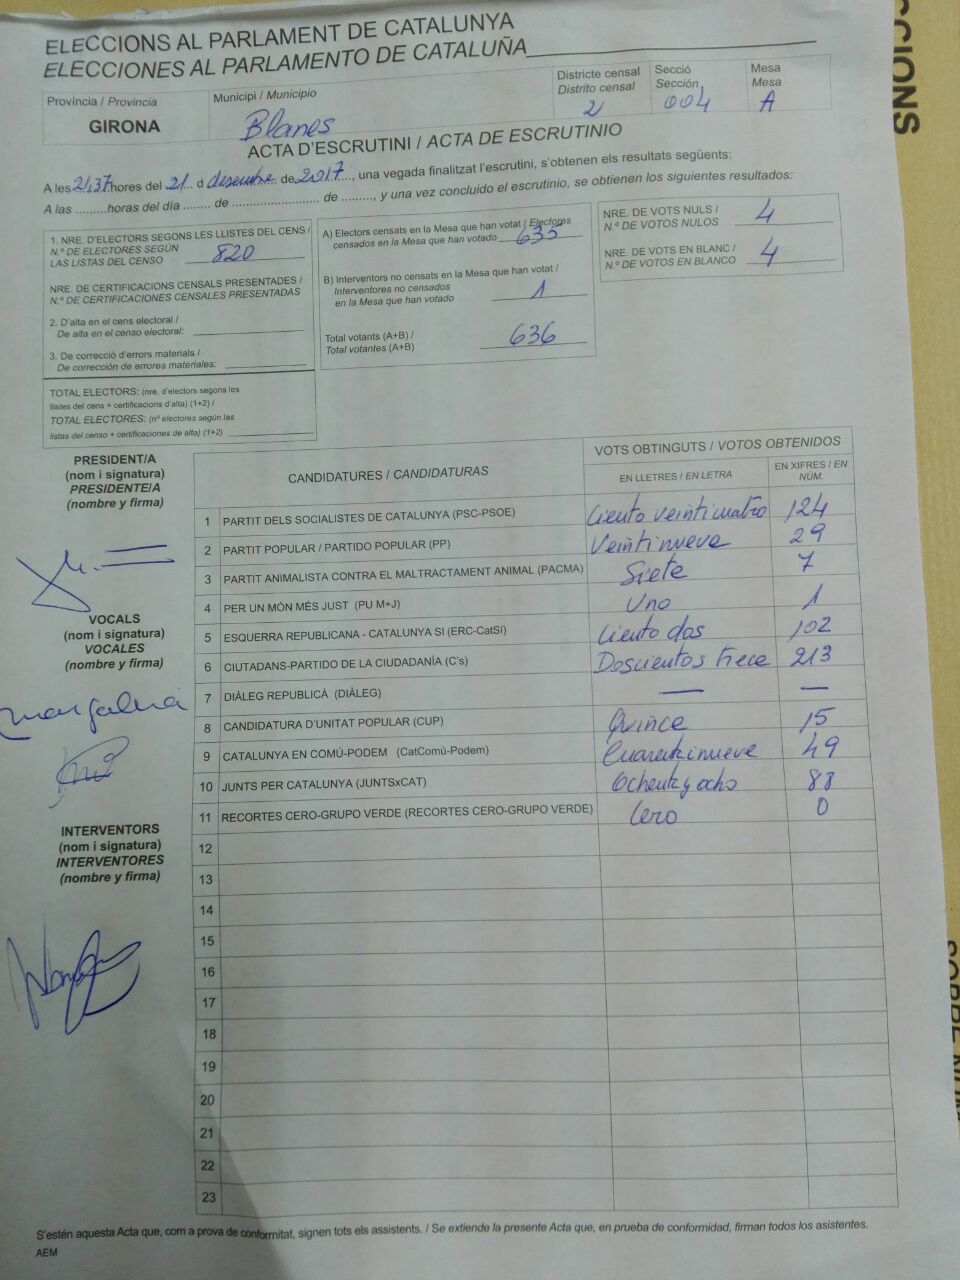 ELECCIONS AL PARLAMENT DE CATALUNYA
ELECCIONES AL PARLAMENTO DE CATALUÑA
Provincia / Provincia
GIRONA
Municipi / Municipio
Blanes
Districte censal
Distrito censal
2
Secció
Sección
004
Mesa
Mesa
A
ACTA D'ESCRUTINI / ACTA DE ESCRUTINIO
A les 21,37 hores del 21 d desembre de 2017, una vegada finalitzat l'escrutini, s'obtenen els resultats següents:
A las .........horas del día ........ de .......................... de ........., y una vez concluido el escrutinio, se obtienen los siguientes resultados:
1. NRE. D'ELECTORS SEGONS LES LLISTES DEL CENS /
N.º DE ELECTORES SEGÚN
LAS LISTAS DEL CENSO 820
NRE. DE CERTIFICACIONS CENSALS PRESENTADES /
N.º DE CERTIFICACIONES CENSALES PRESENTADAS
2. D'alta en el cens electoral /
De alta en el censo electoral:
3. De correcció d'errors materials /
De corrección de errores materiales:
TOTAL ELECTORS: (nre. d'electors segons les
llistes del cens + certificacions d'alta) (1+2) /
TOTAL ELECTORES: (nº electores según las
listas del censo + certificaciones de alta) (1+2)
A) Electors censats en la Mesa que han votat / Electores
censados en la Mesa que han votado 635
B) Interventors no censats en la Mesa que han votat /
Interventores no censados
en la Mesa que han votado 1
Total votants (A+B) /
Total votantes (A+B) 636
NRE. DE VOTS NULS /
N.º DE VOTOS NULOS 4
NRE. DE VOTS EN BLANC /
N.º DE VOTOS EN BLANCO 4
PRESIDENT/A
(nom i signatura)
PRESIDENTE/A
(nombre y firma)
VOCALS
(nom i signatura)
VOCALES
(nombre y firma)
INTERVENTORS
(nom i signatura)
INTERVENTORES
(nombre y firma)
CANDIDATURES / CANDIDATURAS
VOTS OBTINGUTS / VOTOS OBTENIDOS
EN LLETRES / EN LETRA
EN XIFRES / EN
NÚM.
1 PARTIT DELS SOCIALISTES DE CATALUNYA (PSC-PSOE) Ciento veinticuatro 124
2 PARTIT POPULAR / PARTIDO POPULAR (PP) Veintinueve 29
3 PARTIT ANIMALISTA CONTRA EL MALTRACTAMENT ANIMAL (PACMA) Siete 7
4 PER UN MÓN MÉS JUST (PU M+J) Uno 1
5 ESQUERRA REPUBLICANA - CATALUNYA SI (ERC-CatSí) Ciento dos 102
6 CIUTADANS-PARTIDO DE LA CIUDADANÍA (C's) Doscientos trece 213
7 DIÀLEG REPUBLICÀ (DIÀLEG) — —
8 CANDIDATURA D'UNITAT POPULAR (CUP) Quince 15
9 CATALUNYA EN COMÚ-PODEM (CatComú-Podem) Cuarentinueve 49
10 JUNTS PER CATALUNYA (JUNTSxCAT) Ochenta y ocho 88
11 RECORTES CERO-GRUPO VERDE (RECORTES CERO-GRUPO VERDE) Cero 0
12
13
14
15
16
17
18
19
20
21
22
23
S'estén aquesta Acta que, com a prova de conformitat, signen tots els assistents. / Se extiende la presente Acta que, en prueba de conformidad, firman todos los asistentes.
AEM